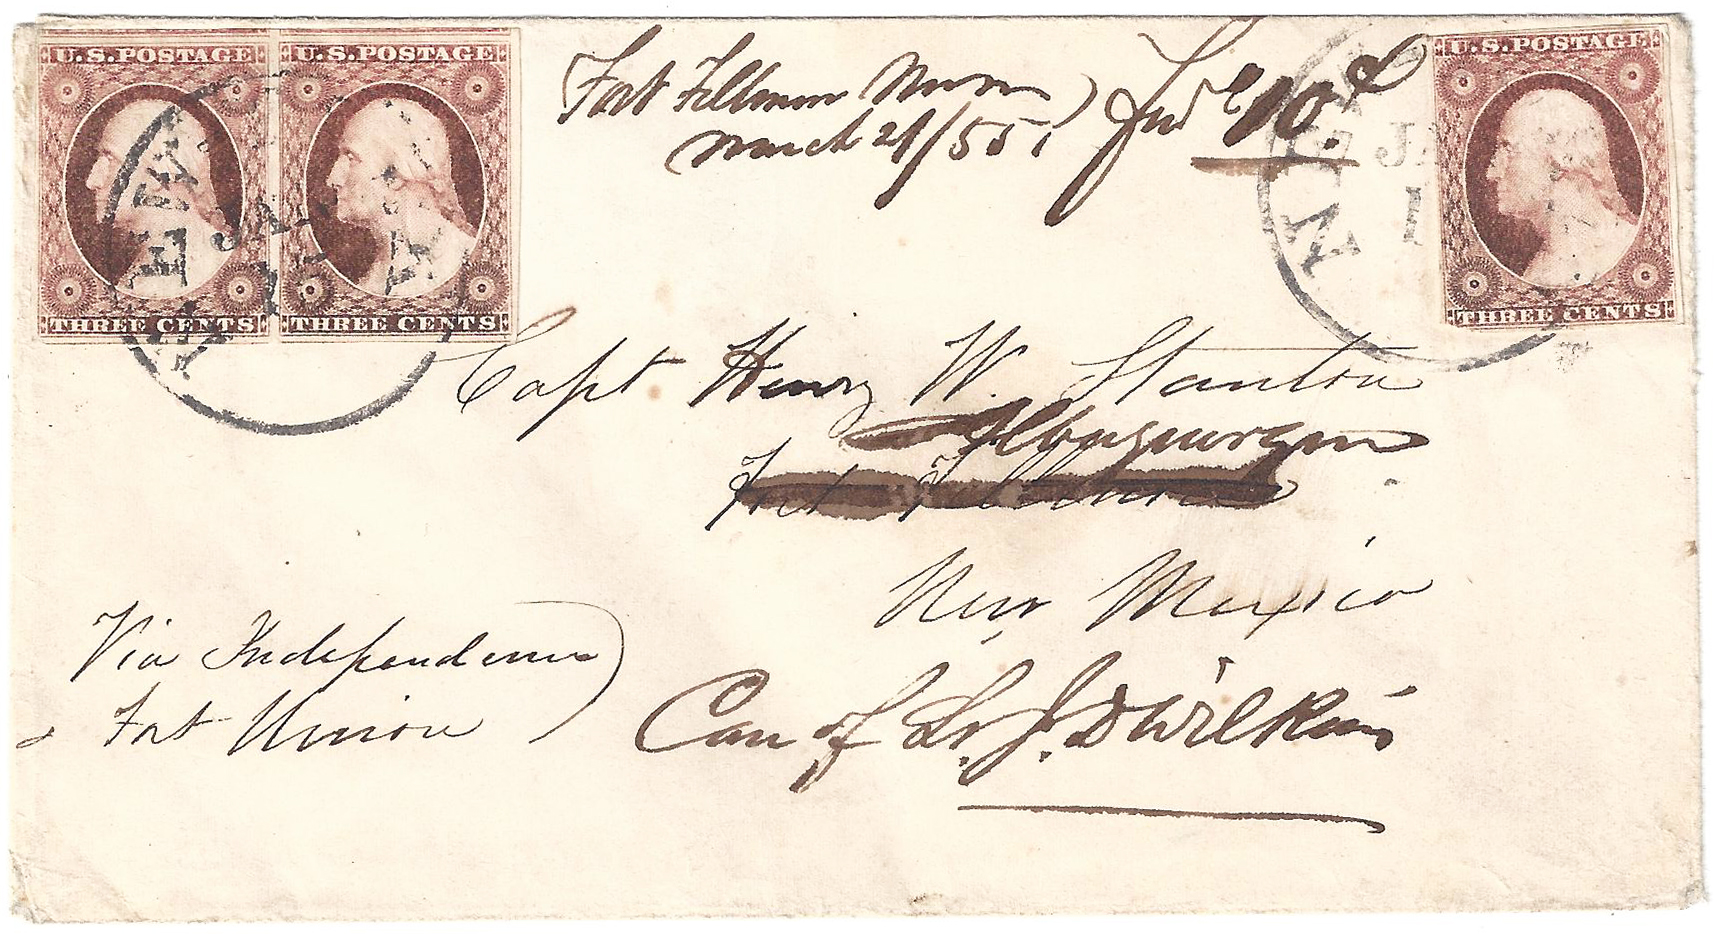 U.S.POSTAGE
THREE CENTS
U.S.POSTAGE
THREE CENTS
U.S.POSTAGE
THREE CENTS
NEW
JAN
JA
1
NEW
Fort Fillmore
March 21/55
10
Capt Henry W. Stanton
Albuquerque
Fort Fillmore
New Mexico
Via Independence
Fort Union
Care of Lt J. D Wilkins